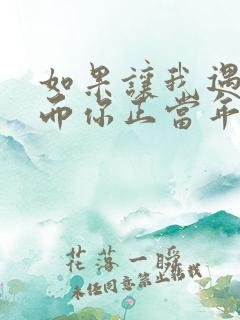 如果讓我遇
而你正當年
花落一瞬
未经同意禁止转载